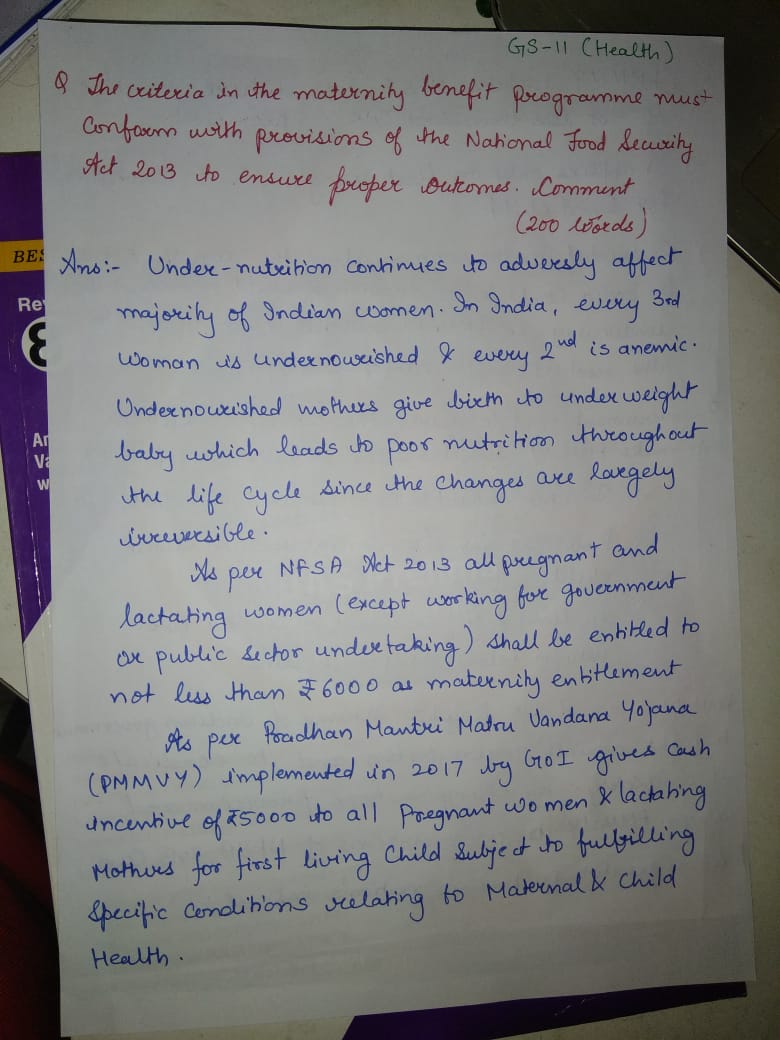 GS-11 (Health)
Q The criteria in the maternity benefit programme must
Conform with provisions of the National Food Security
Act 2013 to ensure proper outcomes. Comment
(200 Words)
Ans:- Under-nutrition continues to adversly affect
majority of Indian women. In India, every 3rd
woman is undernourished & every 2nd is anemic.
Undernourished mothers give birth to underweight
baby which leads to poor nutrition throughout
the life cycle since the changes are largely
irreversible.
As per NFSA Act 2013 all pregnant and
lactating women (except working for government
or public sector undertaking) shall be entitled to
not less than ₹6000 as maternity entitlement
As per Pradhan Mantri Matru Vandana Yojana
(PMMVY) implemented in 2017 by GoI gives Cash
incentive of ₹5000 to all Pregnant women & lactating
Mothers for first living Child Subject to fulfilling
Specific Conditions relating to Maternal & Child
Health.
BES
Re
8
Ar
Va
w